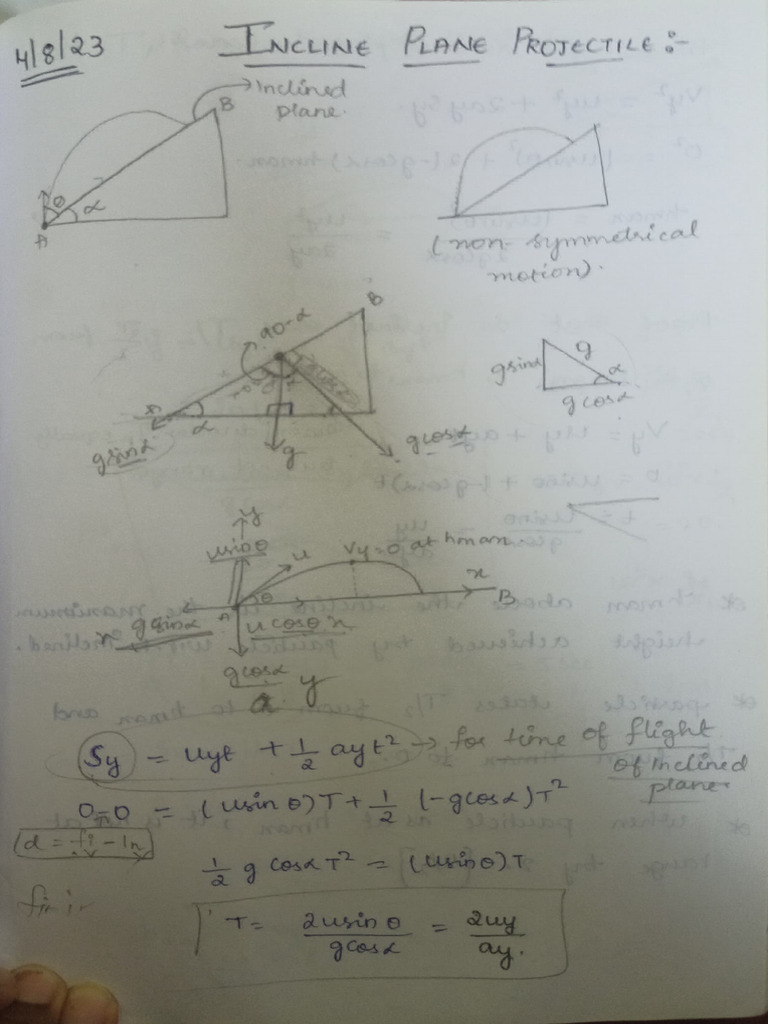 4/8/23
INCLINE PLANE PROJECTILE :-
Inclined
plane.
B
θ
α
A
(non-symmetrical
motion).
B
90-α
α
gsinα
g
gcosα
gsinα
g
α
gcosα
y
usinθ
u
Vy=0 at hmax
x
B
θ
A
gsinα
ucosθ x
gcosα y
Sy = uyt + 1/2 ayt² → for time of flight
of inclined
plane.
0-0 = (usinθ)T + 1/2 (-gcosα)T²
d = fi - In
1/2 g cosα T² = (usinθ)T
T = 2usinθ/gcosα = 2uy/ay.